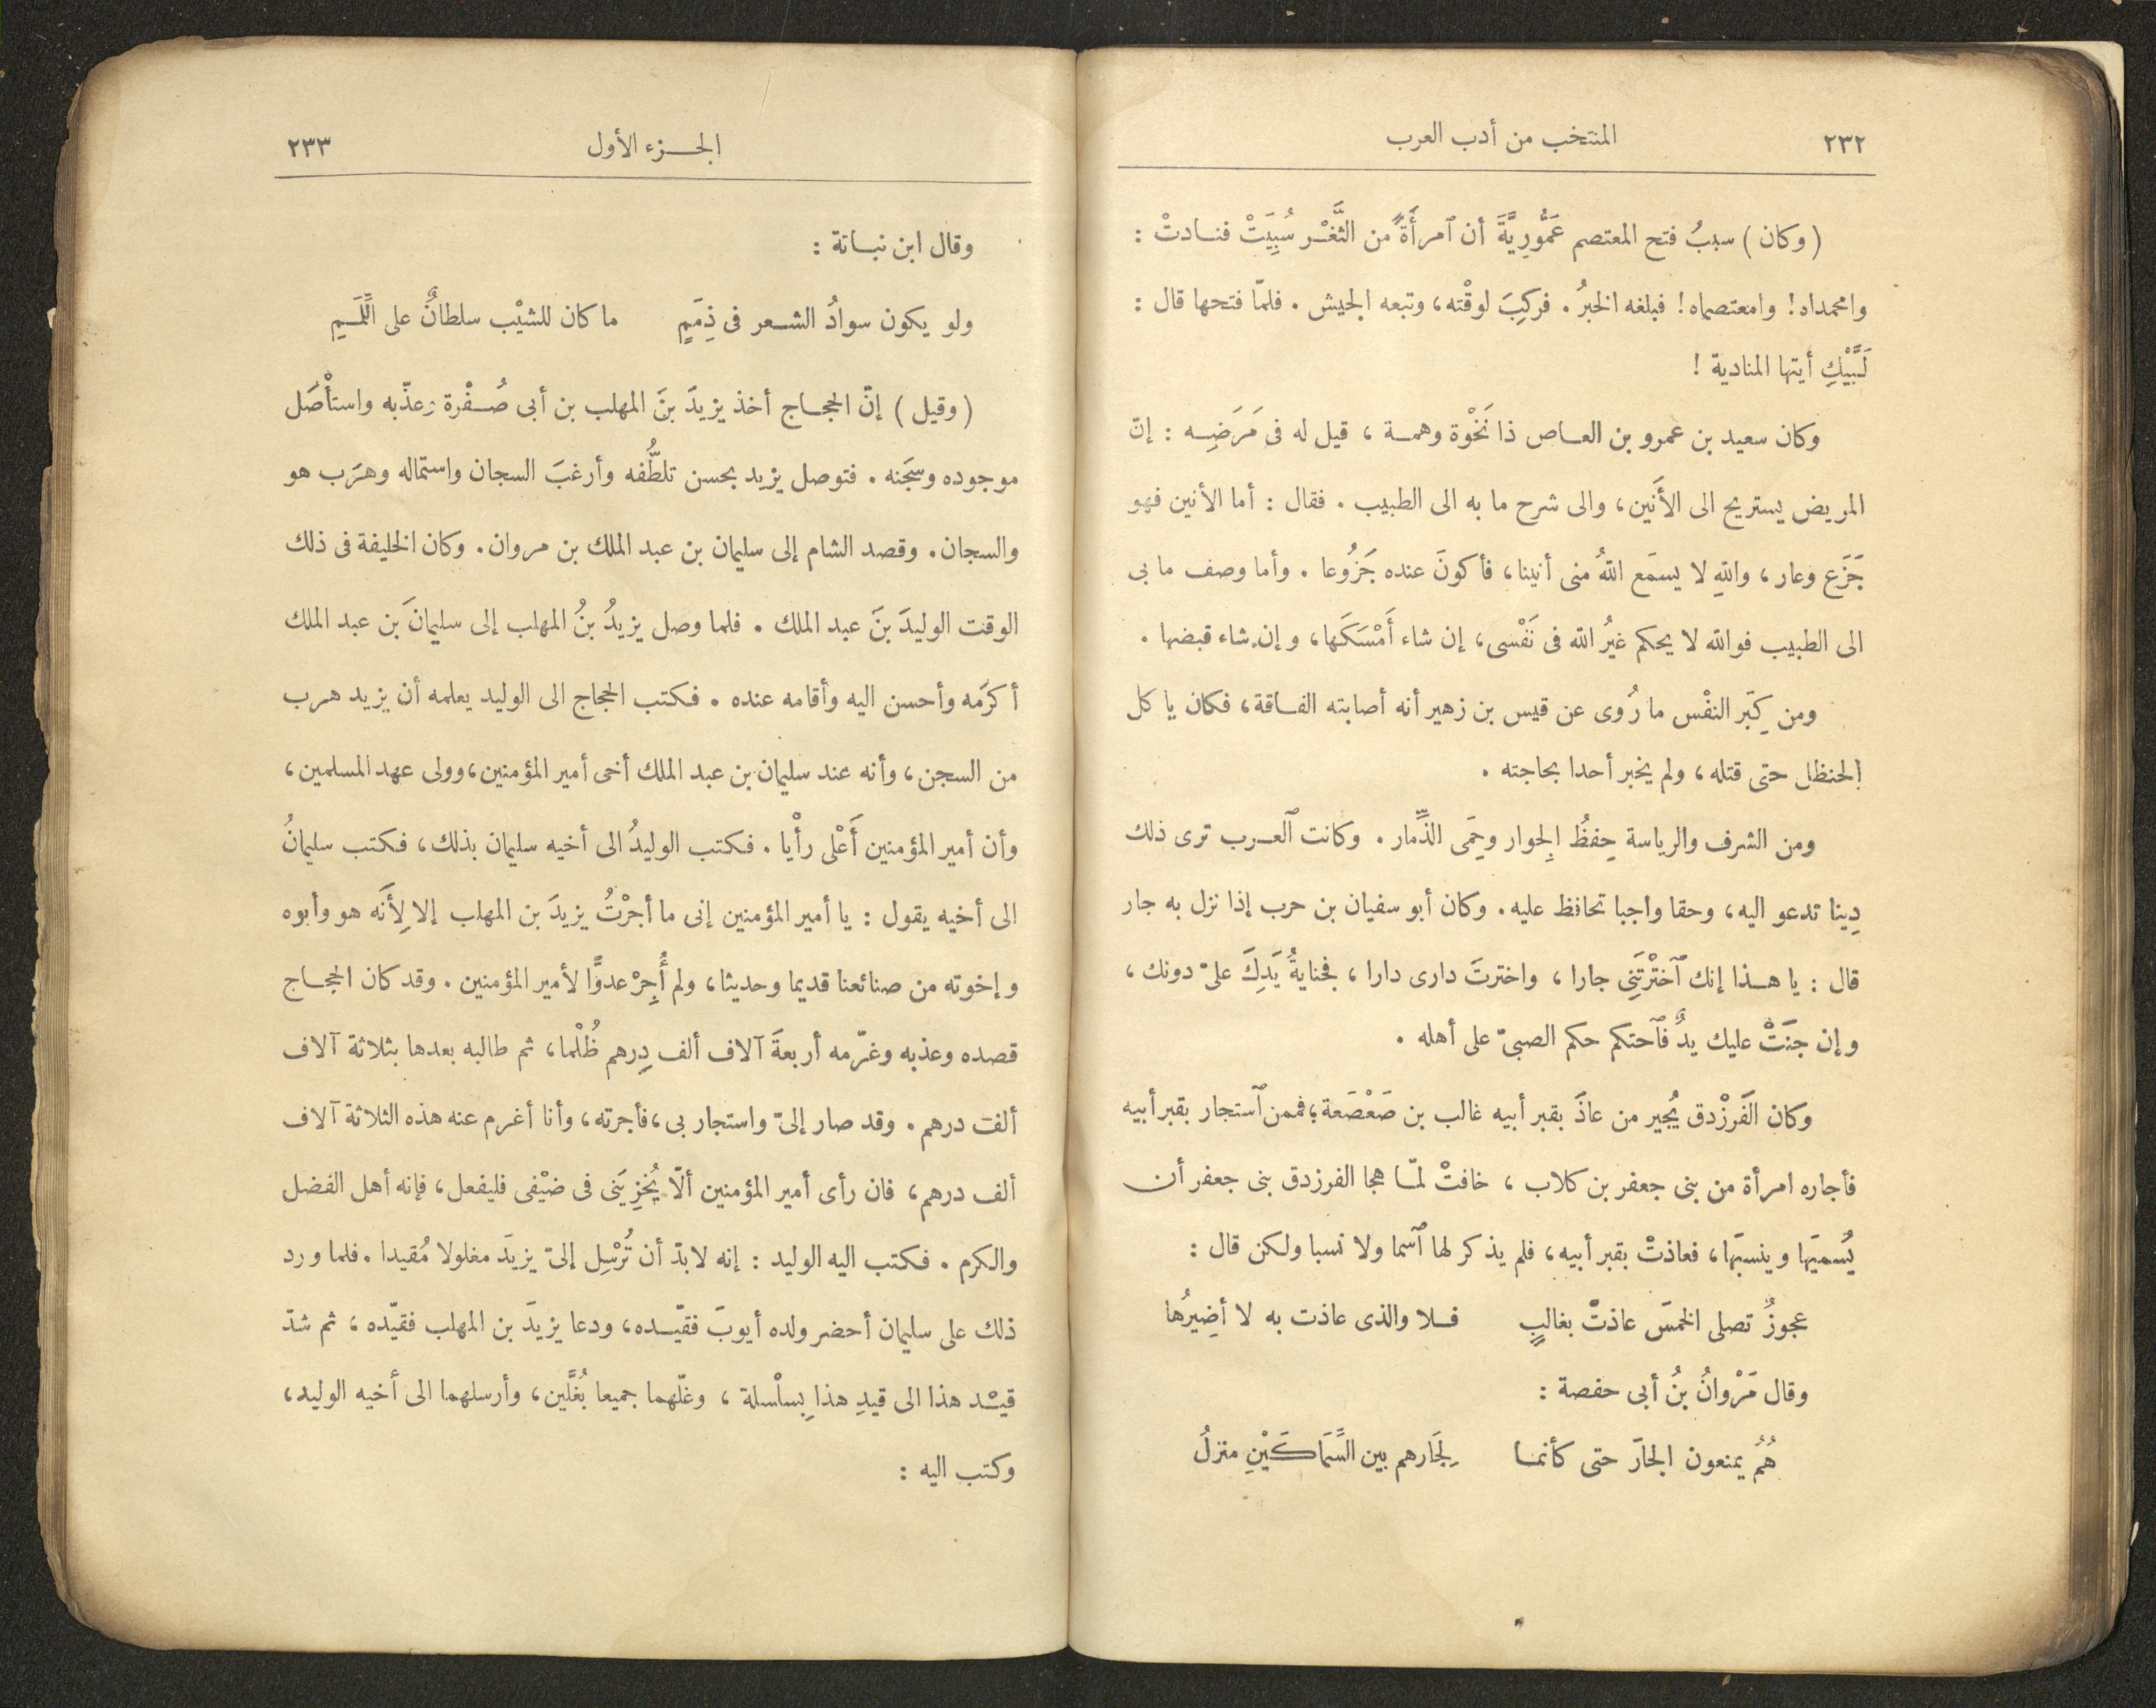 ٢٣٢ المنتخب من أدب العرب
(وكان) سببُ فتح المعتصم عَمُّورِيَّةَ أن ٱمرأَةً من الثَّغْر سُبِيَتْ فنادتْ :
وامحمداه! وامعتصماه! فبلغه الخبرُ . فركِبَ لوقْته، وتبعه الجيش . فلمّا فتحها قال :
لَبَّيْكِ أيتها المنادية !
وكان سعيد بن عمرو بن العاص ذا نَخْوة وهمة ، قيل له فى مَرَضِه : إنّ
المريض يستريح الى الأَنين، والى شرح ما به الى الطبيب . فقال : أما الأنين فهو
جَزَع وعار، واللهِ لا يسمَع اللهُ منى أنينا، فأكونَ عنده جَزُوعا . وأما وصف ما بى
الى الطبيب فوالله لا يحكم غيرُ الله فى نَفْسى، إن شاء أَمْسَكَها، وإن شاء قبضها .
ومن كِبَر النفْس ما رُوى عن قيس بن زهير أنه أصابته الفاقة، فكان ياكل
الحنظل حتى قتله، ولم يخبر أحدا بحاجته .
ومن الشرف والرياسة حِفظُ الجِوار وحِمَى الذِّمار . وكانت ٱلعرب ترى ذلك
دِينا تدعو اليه، وحقا واجبا تحافظ عليه . وكان أبو سفيان بن حرب إذا نزل به جار
قال : يا هذا إنك ٱخترْتَنِى جارا ، واخترتَ دارى دارا ، فجنايةُ يَدِكَ علىّ دونك ،
وإن جنَتْ عليك يدٌ فٱحتكم حكم الصبىّ على أهله .
وكان الفَرزْدق يُجير من عاذَ بقبر أبيه غالب بن صَعْصَعة؛ فممن ٱستجار بقبر أبيه
فأجاره امرأة من بنى جعفر بن كلاب ، خافتْ لمّا هجا الفرزدق بنى جعفر أن
يُسميَها وينسبَها، فعاذتْ بقبر أبيه، فلم يذكر لها ٱسما ولا نسبا ولكن قال :
عجوزٌ تصلى الخمسَ عاذتْ بغالبٍ فلا والذى عاذت به لا أضِيرُها
وقال مَرْوانُ بنُ أبى حفصة :
هُمُ يمنعون الجارَ حتى كأنما لِجَارهم بين السِّمَاكَيْنِ منزلُ
الجزء الأول ٢٣٣
وقال ابن نباتة :
ولو يكون سوادُ الشعر فى ذِمَمٍ ما كان للشيْب سلطانٌ على اللِّمَمِ
(وقيل) إنّ الحجاج أخذ يزيدَ بنَ المهلب بن أبى صُفْرة وعذّبه واستأْصَل
موجوده وسجَنه . فتوصل يزيد بحسن تلطُّفه وأرغبَ السجان واستماله وهرَب هو
والسجان. وقصد الشام إلى سليمان بن عبد الملك بن مروان. وكان الخليفة فى ذلك
الوقت الوليدَ بنَ عبد الملك . فلما وصل يزيدُ بنُ المهلب إلى سليمانَ بن عبد الملك
أكرَمه وأحسن اليه وأقامه عنده . فكتب الحجاج الى الوليد يعلمه أن يزيد هرب
من السجن، وأنه عند سليمان بن عبد الملك أخى أمير المؤمنين، وولى عهد المسلمين،
وأن أمير المؤمنين أَعْلى رأْيا . فكتب الوليدُ الى أخيه سليمان بذلك، فكتب سليمانُ
الى أخيه يقول : يا أمير المؤمنين إنى ما أجرْتُ يزيدَ بن المهلب إلا لِأَنه هو وأبوه
وإخوته من صنائعنا قديما وحديثا، ولم أُجِرْ عدوًّا لأمير المؤمنين . وقد كان الحجاج
قصده وعذبه وغرّمه أربعةَ آلاف ألف دِرهم ظُلْما، ثم طالبه بعدها بثلاثة آلاف
ألف درهم. وقد صار إلىّ واستجار بى، فأجرته، وأنا أغرم عنه هذه الثلاثة آلاف
ألف درهم، فان رأى أمير المؤمنين ألّا يُخزِيَنى فى ضيْفى فليفعل، فإنه أهل الفضل
والكرم . فكتب اليه الوليد : إنه لابدّ أن تُرْسِل إلىّ يزيدَ مغلولا مُقيدا . فلما ورد
ذلك على سليمان أحضر ولده أيوبَ فقيّده، ودعا يزيدَ بن المهلب فقيّده، ثم شدّ
قيْد هذا الى قيدِ هذا بِسلْسلة ، وغلّهما جميعا بُغلَّين، وأرسلهما الى أخيه الوليد،
وكتب اليه :